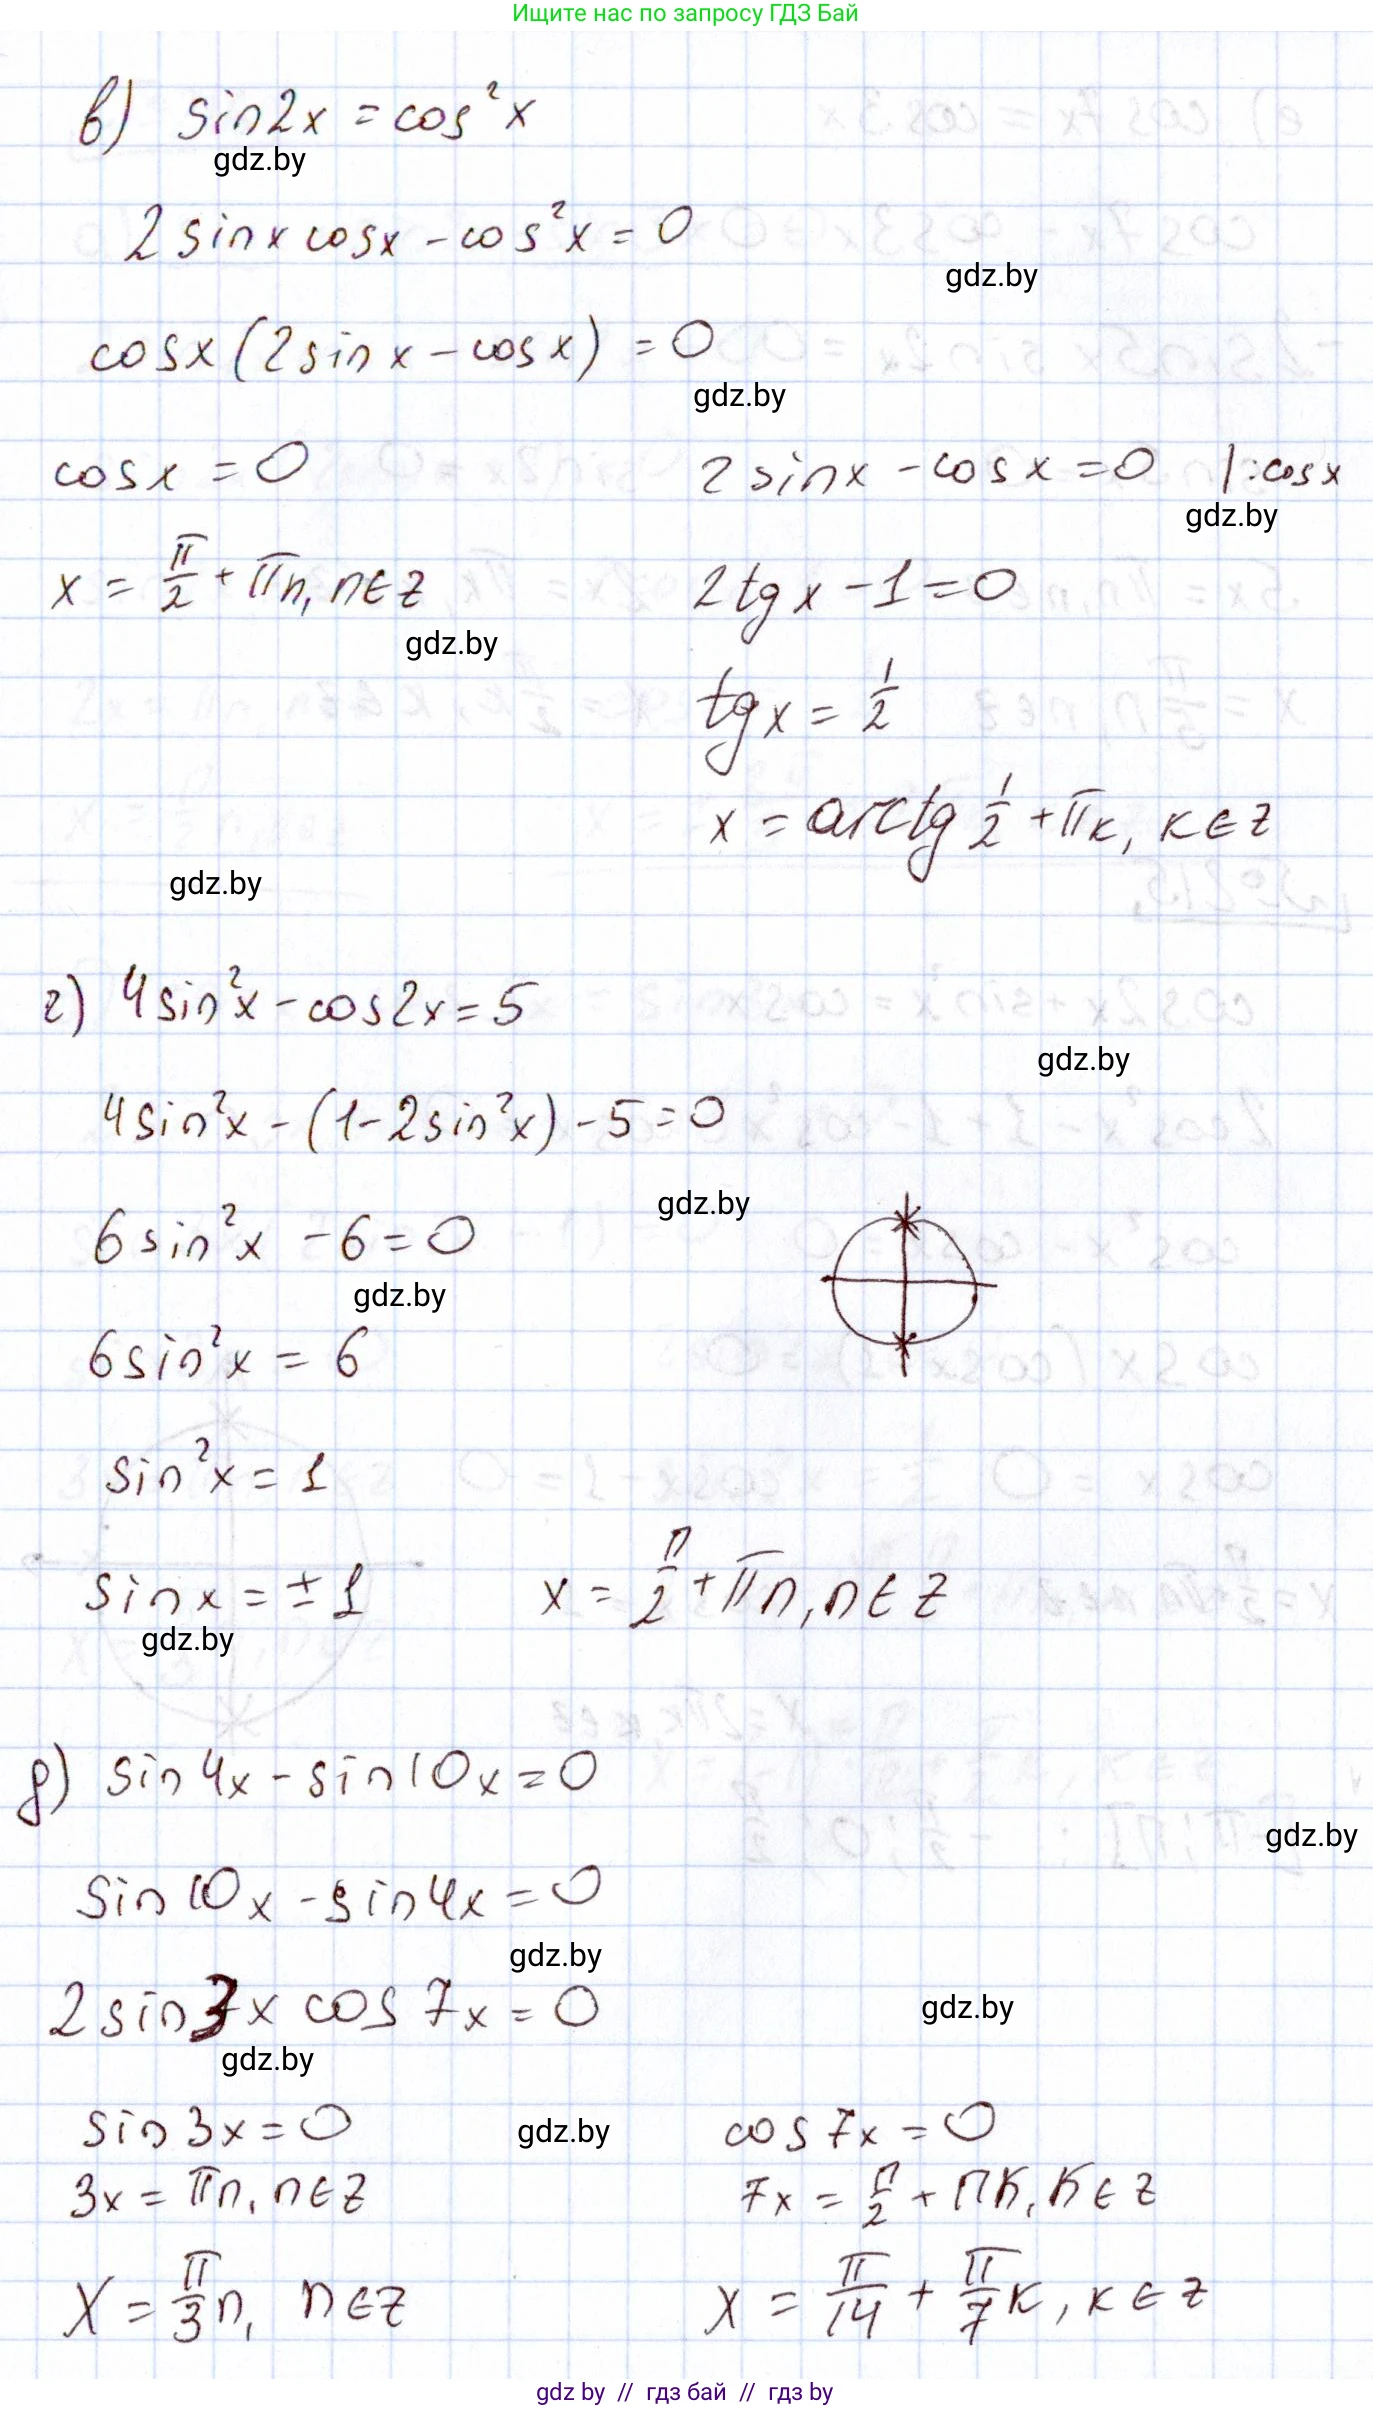 Ищите нас по запросу ГДЗ Бай
в) sin2x = cos²x
gdz.by
2 sinx cosx - cos²x = 0
gdz.by
cosx (2sinx - cosx) = 0
gdz.by
cosx = 0    2 sinx - cosx = 0 |:cosx
gdz.by
x = π/2 + πn, n∈Z    2tgx - 1 = 0
gdz.by
tgx = 1/2
x = arctg 1/2 + πк, к∈Z
gdz.by
г) 4sin²x - cos2x = 5
gdz.by
4sin²x - (1-2sin²x) - 5 = 0
gdz.by
6sin²x - 6 = 0
gdz.by
6sin²x = 6
sin²x = 1
sinx = ±1    x = π/2 + πn, n∈Z
gdz.by
д) sin4x - sin10x = 0
gdz.by
sin10x - sin4x = 0
gdz.by
2sin3x cos7x = 0
gdz.by
gdz.by
sin3x = 0    cos7x = 0
gdz.by
3x = πn, n∈Z    7x = π/2 + πк, к∈Z
x = π/3 n, n∈Z    x = π/14 + π/7 к, к∈Z
gdz by // гдз бай // гдз by